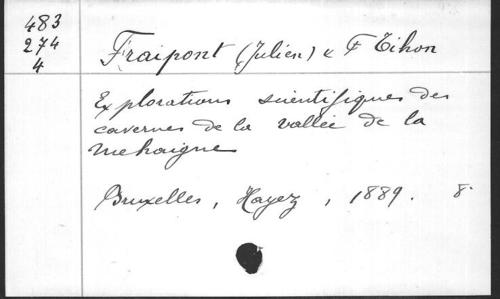 483
274
4
Fraipont (Julien) & F Tihon
Explorations scientifiques des
cavernes de la vallée de la
Mehaigne
Bruxelles, Hayez, 1889. 8°